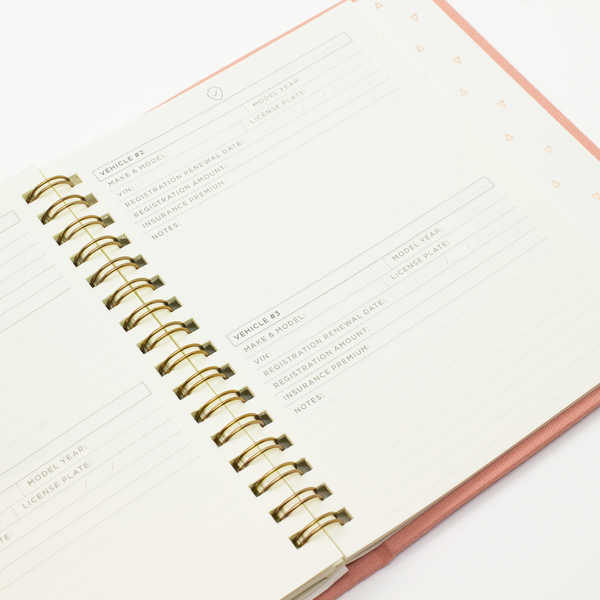 VEHICLE #2
MAKE & MODEL: MODEL YEAR:
VIN: LICENSE PLATE:
REGISTRATION RENEWAL DATE: / /
REGISTRATION AMOUNT:
INSURANCE PREMIUM:
NOTES:
VEHICLE #3
MAKE & MODEL: MODEL YEAR:
VIN: LICENSE PLATE:
REGISTRATION RENEWAL DATE: / /
REGISTRATION AMOUNT:
INSURANCE PREMIUM:
NOTES:
MODEL YEAR:
LICENSE PLATE:
TE: / /